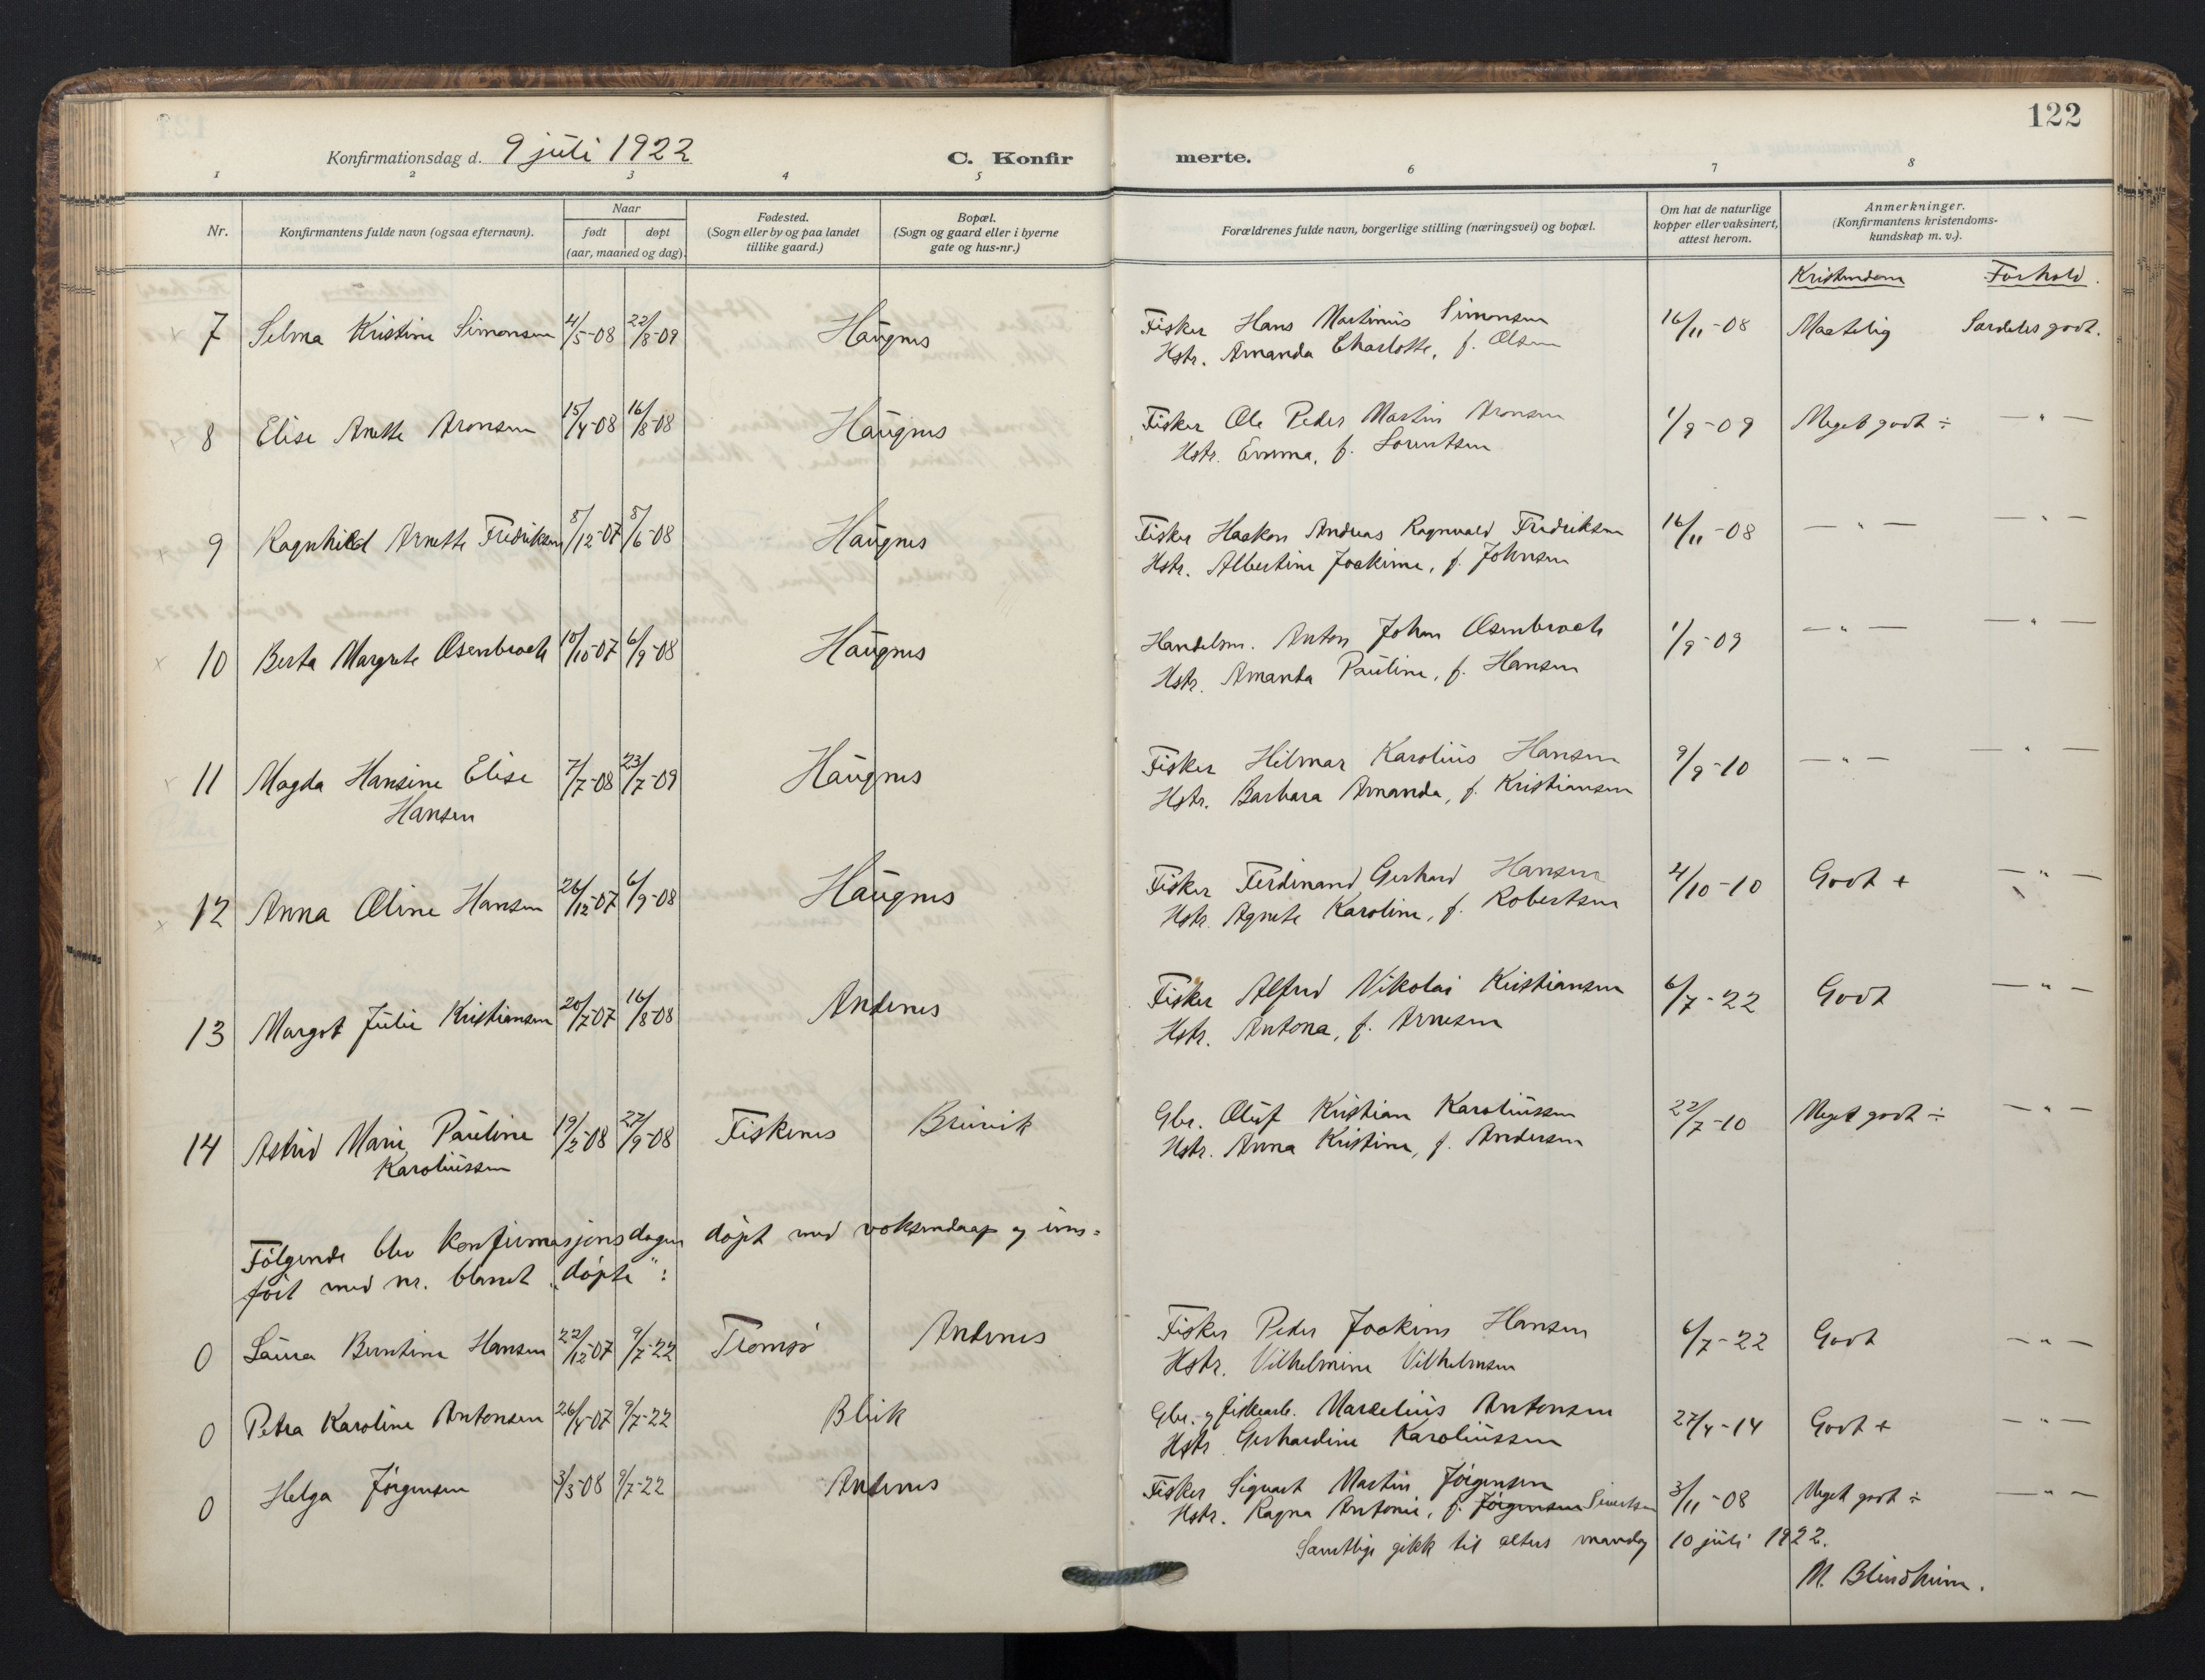 122
Konfirmationsdag d. 9 juli 1922 C. Konfir merte.
1 2 3 4 5 6 7 8
Nr.
Konfirmantens fulde navn (ogsaa efternavn).
Naar
født døpt
(aar, maaned og dag).
Fødested.
(Sogn eller by og paa landet
tillike gaard.)
Bopæl.
(Sogn og gaard eller i byerne
gate og hus-nr.)
Forældrenes fulde navn, borgerlige stilling (næringsvei) og bopæl.
Om hat de naturlige
kopper eller vaksinert,
attest herom.
Anmerkninger.
(Konfirmantens kristendoms-
kundskap m. v.).
Kristendom Forhold.
7 Selma Kristine Simonsen 4/5-08 22/8-09 Haugnes Fisker Hans Martinus Simonsen 16/11-08 Maatelig Særdeles godt.
Hstr. Amanda Charlotte, f. Olsen
8 Elise Anette Aronsen 15/4-08 16/8-08 Haugnes Fisker Ole Peder Martin Aronsen 1/9-09 Meget godt ÷ — " —
Hstr. Emma, f. Lorentsen
9 Ragnhild Arnette Fredriksen 8/12-07 8/6-08 Haugnes Fisker Haakon Andreas Ragnvald Fredriksen 16/11-08 — " — — " —
Hstr. Albertine Joakime, f. Johnsen
10 Berta Margrete Osenbroch 15/10-07 6/9-08 Haugnes Handelsm. Anton Johan Osenbroch 1/9-09 — " — — " —
Hstr. Amanda Pauline, f. Hansen
11 Magda Hansine Elise 7/7-08 23/7-09 Haugnes Fisker Hilmar Karolius Hansen 9/9-10 — " — — " —
Hansen Hstr. Barbara Amanda, f. Kristiansen
12 Anna Oline Hansen 26/12-07 6/9-08 Haugnes Fisker Ferdinand Gerhard Hansen 4/10-10 Godt + — " —
Hstr. Agnete Karoline, f. Robertsen
13 Margot Julie Kristiansen 20/7-07 16/8-08 Andenes Fisker Alfred Nikolai Kristiansen 6/7-22 Godt — " —
Hstr. Antona, f. Arnesen
14 Astrid Marie Pauline 19/2-08 27/9-08 Fiskenes Breivik Gbr. Oluf Kristian Karoliussen 22/7-10 Meget godt ÷ — " —
Karoliussen Hstr. Anna Kristine, f. Andersen
Følgende blev konfirmasjonsdagen døpt med voksendaap og inn=
ført med nr. blandt "døpte":
0 Laura Berntine Hansen 22/12-07 9/7-22 Tromsø Andenes Fisker Peder Joakim Hansen 6/7-22 Godt — " —
Hstr. Vilhelmine Vilhelmsen
0 Petra Karoline Antonsen 26/4-07 9/7-22 Bleik Gbr. og fiskearb. Marselius Antonsen 27/4-14 Godt + — " —
Hstr Gerhardine Karoliussen
0 Helga Jørgensen 3/3-08 9/7-22 Andenes Fisker Sigvart Martin Jørgensen 3/11-08 Meget godt ÷ — " —
Hstr. Ragna Antonie, f. Jørgensen Sivertsen
Samtlige gikk til alters mandag 10 juli 1922.
M. Blindheim.